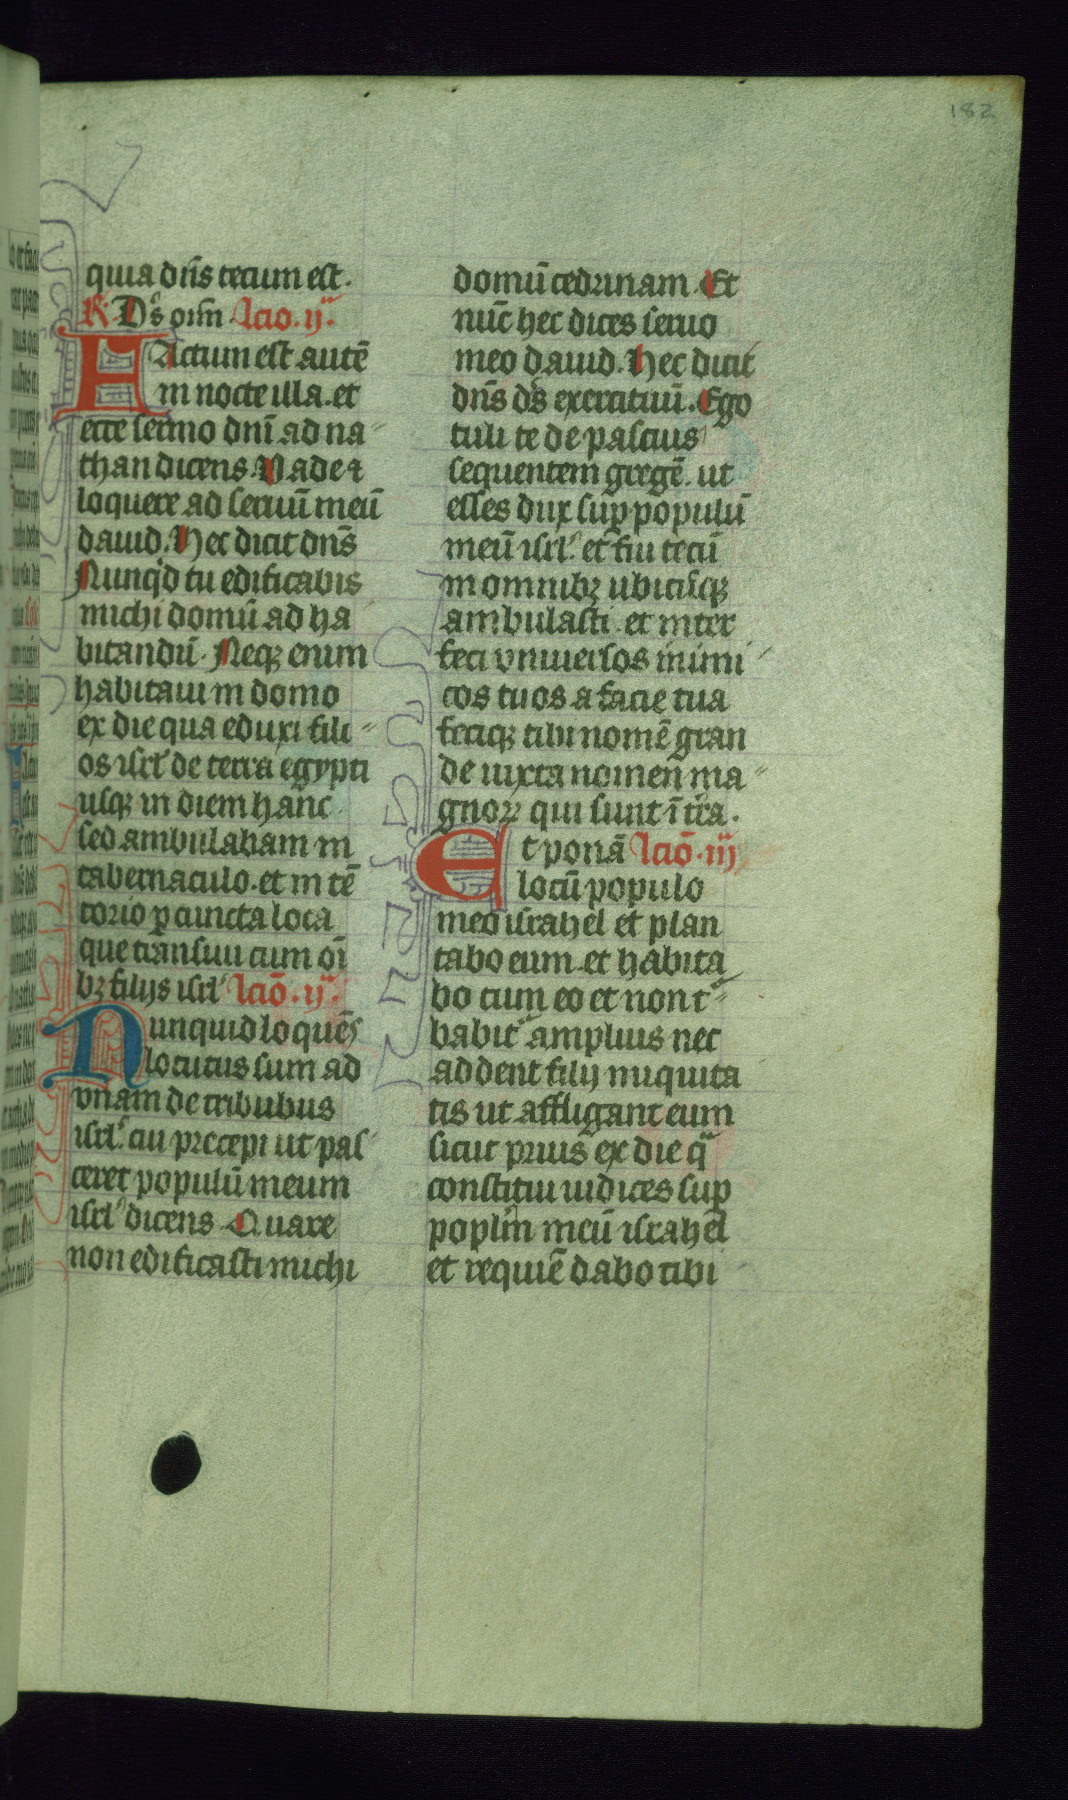 182
quia dn̄s tecum est.
R. Ds̄ oīm. lcio. ij.ª
Factum est autē
in nocte illa. et
ecce sermo dnī ad na
than dicens. Vade ⁊
loquere ad seruū meū
dauid. Hec dicit dn̄s
Nunqͥd tu edificabis
michi domū ad ha
bitandū. Neqꝫ enim
habitaui in domo
ex die qua eduxi fili
os isrl̓ de terra egypti
usqꝫ in diem hanc
sed ambulabam in
tabernaculo. et in tē
torio ꝑ cuncta loca
que transiui cum oī
bꝫ filijs isrl̓ lcıō. ij.ª
Nunquid loquēs
locutus sum ad
vnam de tribubus
isrl̓. cui precepi ut pas
ceret populū meum
isrl̓ dicens. Quare
non edificasti michi
domū cedrinam. Et
nūc hec dices seruo
meo dauid. Hec dicit
dn̄s ds̄ exercituū. Ego
tuli te de pascuis
sequentem gregē. ut
esses dux sup populū
meū isrl̓. et fui tecū
in omnibꝫ ubicūqꝫ
ambulasti. et inter
feci vniuersos inimi
cos tuos a facie tua
feciqꝫ tibi nomē gran
de iuxta nomen ma
gnoꝝ qui sunt ī tr̄a.
Et ponā lcıō. iij
locū populo
meo israhel et plan
tabo eum. et habita
bo cum eo et non tͬ
babitͬ amplius nec
addent filij iniquita
tis ut affligant eum
sicut prius ex die qͣ
constitui iudices sup
popl̄m meū israhel
et requiē dabo tibi